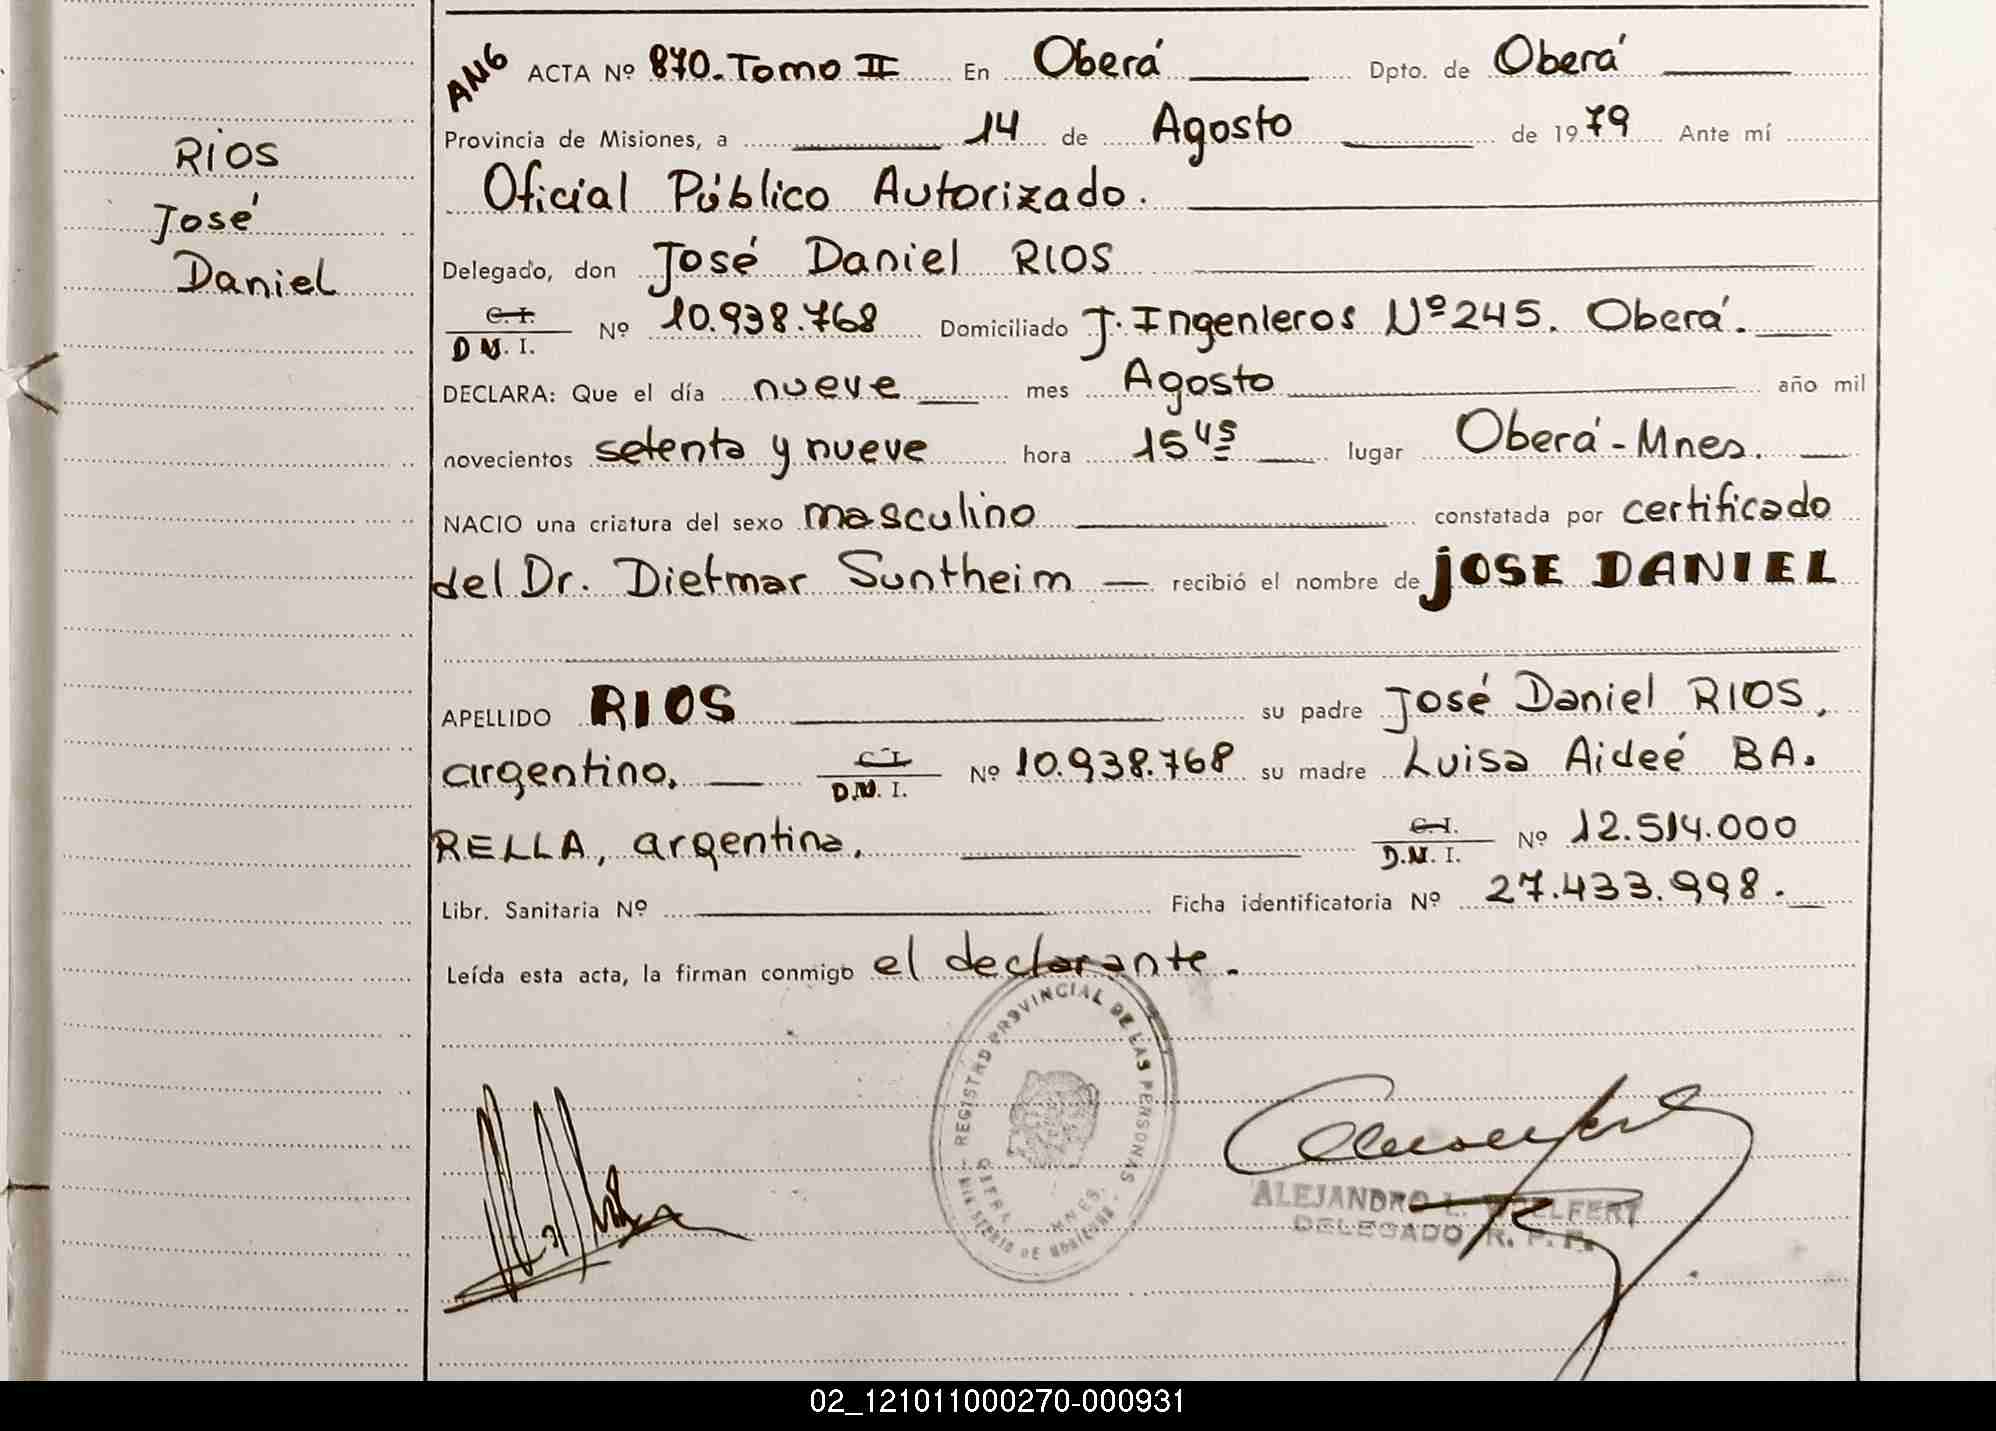 ANG ACTA Nº 870. Tomo II En Oberá Dpto. de Oberá
Provincia de Misiones, a 14 de Agosto de 1979 Ante mí
Oficial Público Autorizado.
Delegado, don José Daniel RIOS
C. I. / D N. I. Nº 10.938.768 Domiciliado J. Ingenieros Nº 245. Oberá.
DECLARA: Que el día nueve mes Agosto año mil
novecientos setenta y nueve hora 15 45 lugar Oberá - Mnes.
NACIO una criatura del sexo masculino constatada por certificado
del Dr. Dietmar Suntheim recibió el nombre de JOSE DANIEL
APELLIDO RIOS su padre José Daniel RIOS,
argentino, C. I. / D.N. I. Nº 10.938.768 su madre Luisa Aideé BA.
RELLA, argentina. C. I. / D.N. I. Nº 12.514.000
Libr. Sanitaria Nº Ficha identificatoria Nº 27.433.998.
Leída esta acta, la firman conmigo el declarante.
RIOS
José
Daniel
REGISTRO PROVINCIAL DE LAS PERSONAS
MINISTERIO DE GOBIERNO
OBERA MNES.
ALEJANDRO L.
DELEGADO R. P. P.
02_121011000270-000931